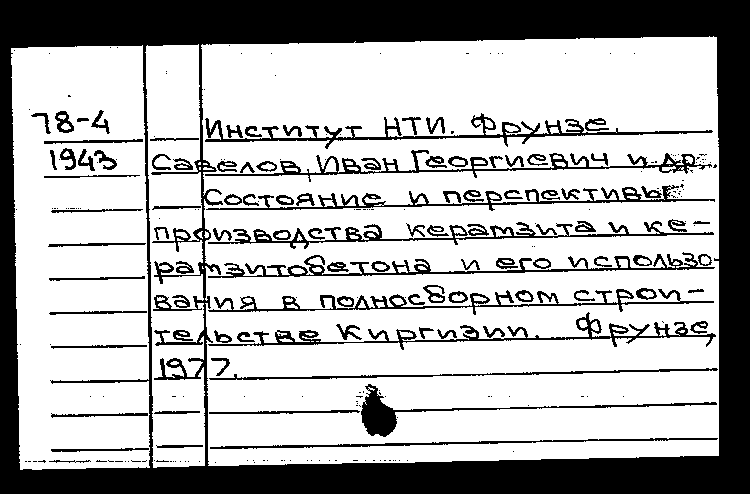 78-4 Институт НТИ. Фрунзе.
1943 Савелов, Иван Георгиевич и др.
Состояние и перспективы
производства керамзита и ке-
рамзитобетона и его использо-
вания в полносборном строи-
тельстве Киргизии. Фрунзе,
1977.